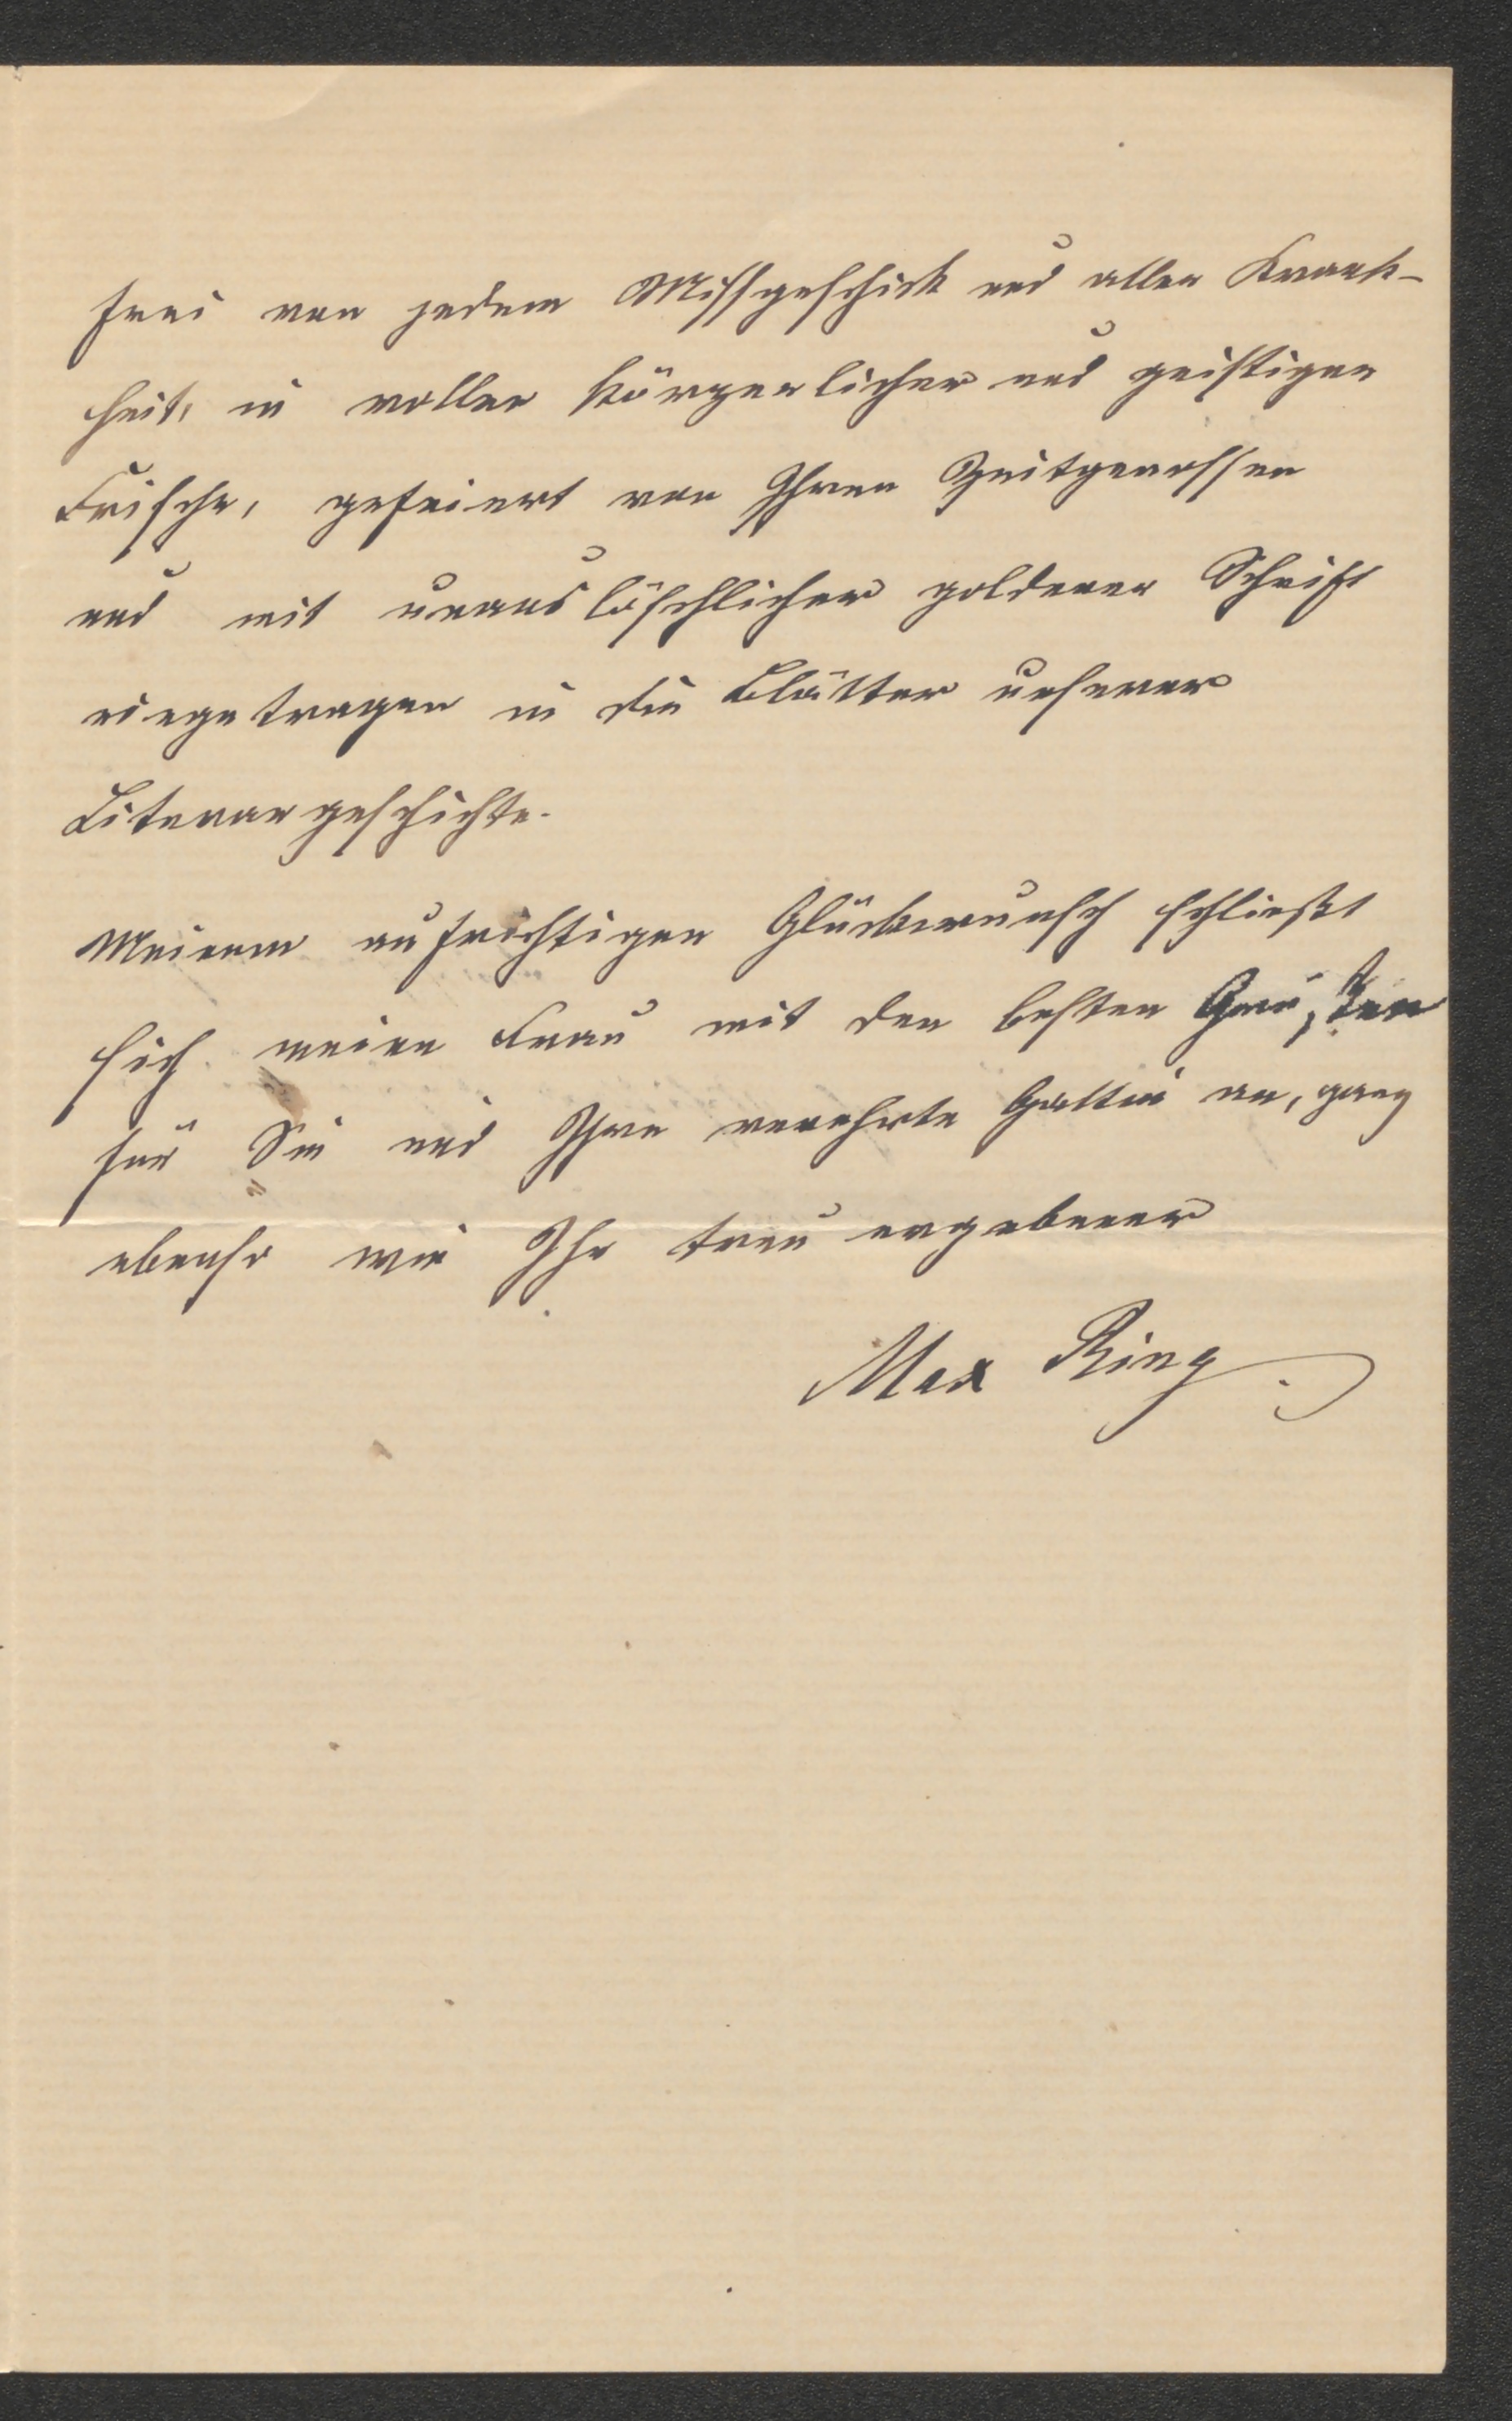 frei von jedem Missgeschick und aller Krank-
heit, in voller körperlicher und geistiger
Frische, gefeiert von Ihren Zeitgenossen
und mit unauslöschlicher goldener Schrift
eingetragen in die Blätter unserer
Literargeschichte.
Meinem aufrichtigen Glückwunsch schließt
sich meine Frau mit den besten Grüßen
für Sie und Ihre verehrte Gattin an, ganz
ebenso wie Ihr treu ergebener
Max Ring.